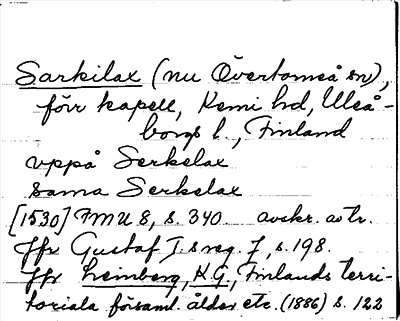 Sarkilax (nu Övertorneå sn),
förr kapell, Kemi hd, Uleå-
borgs l., Finland
uppå Serkelax
sama Serkelax
[1530] FMU 8, s. 340. avskr. av tr.
Jfr Gustaf I:s reg. 7, s. 198.
Jfr Leinberg, K.G., Finlands terri-
toriala församl. ålder etc. (1886) s. 122